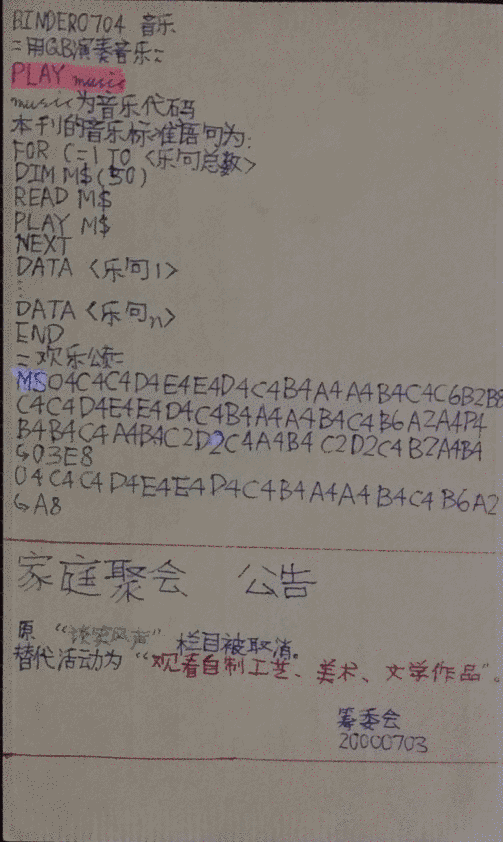 BINDER0704 音乐
=用GB演奏音乐=
PLAY music
music为音乐代码
本刊的音乐标准语句为:
FOR C=1 TO <乐句总数>
DIM M$(50)
READ M$
PLAY M$
NEXT
DATA <乐句1>
⋮
DATA <乐句n>
END
=欢乐颂=
MSO4C4C4D4E4E4D4C4B4A4A4B4C4C6B2B8
C4C4D4E4E4D4C4B4A4A4B4C4B6A2A4P4
B4B4C4A4B4C2D2C4A4B4C2D2C4B2A4B4
↳O3E8
O4C4C4D4E4E4D4C4B4A4A4B4C4B6A2
↳A8
家庭聚会 公告
原“谈笑风声”栏目被取消。
替代活动为“观看自制工艺、美术、文学作品”。
筹委会
20000703